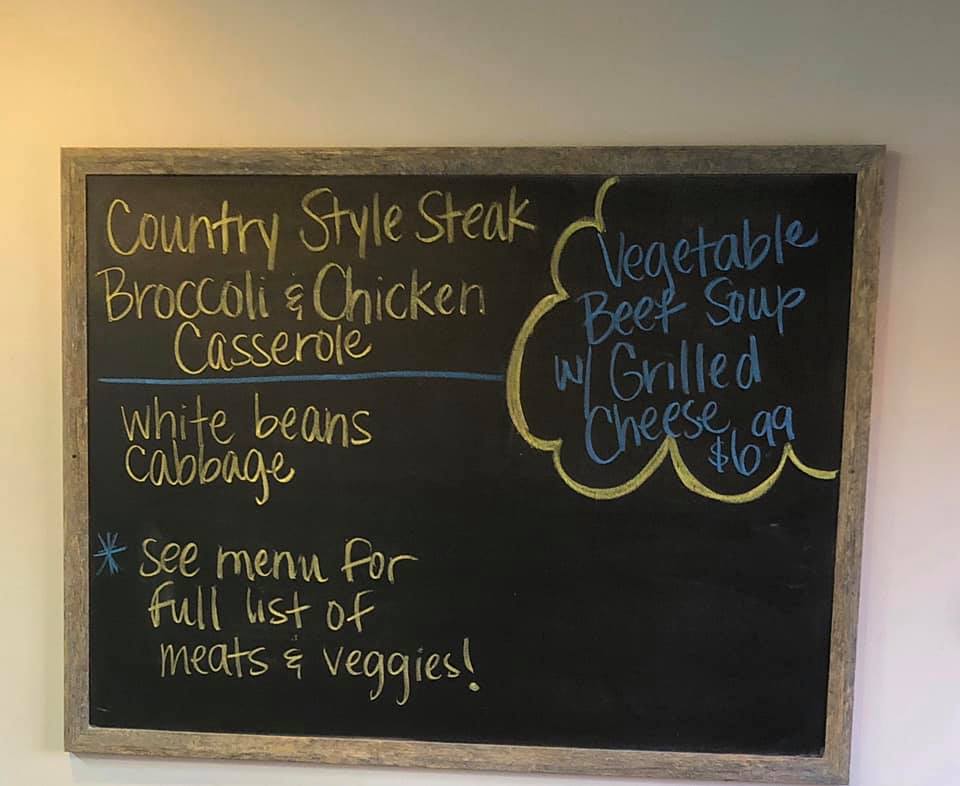 Country Style Steak
Broccoli & Chicken
Casserole
white beans
cabbage
* see menu for
full list of
meats & veggies!
Vegetable
Beef Soup
w/ Grilled
Cheese
$6.99